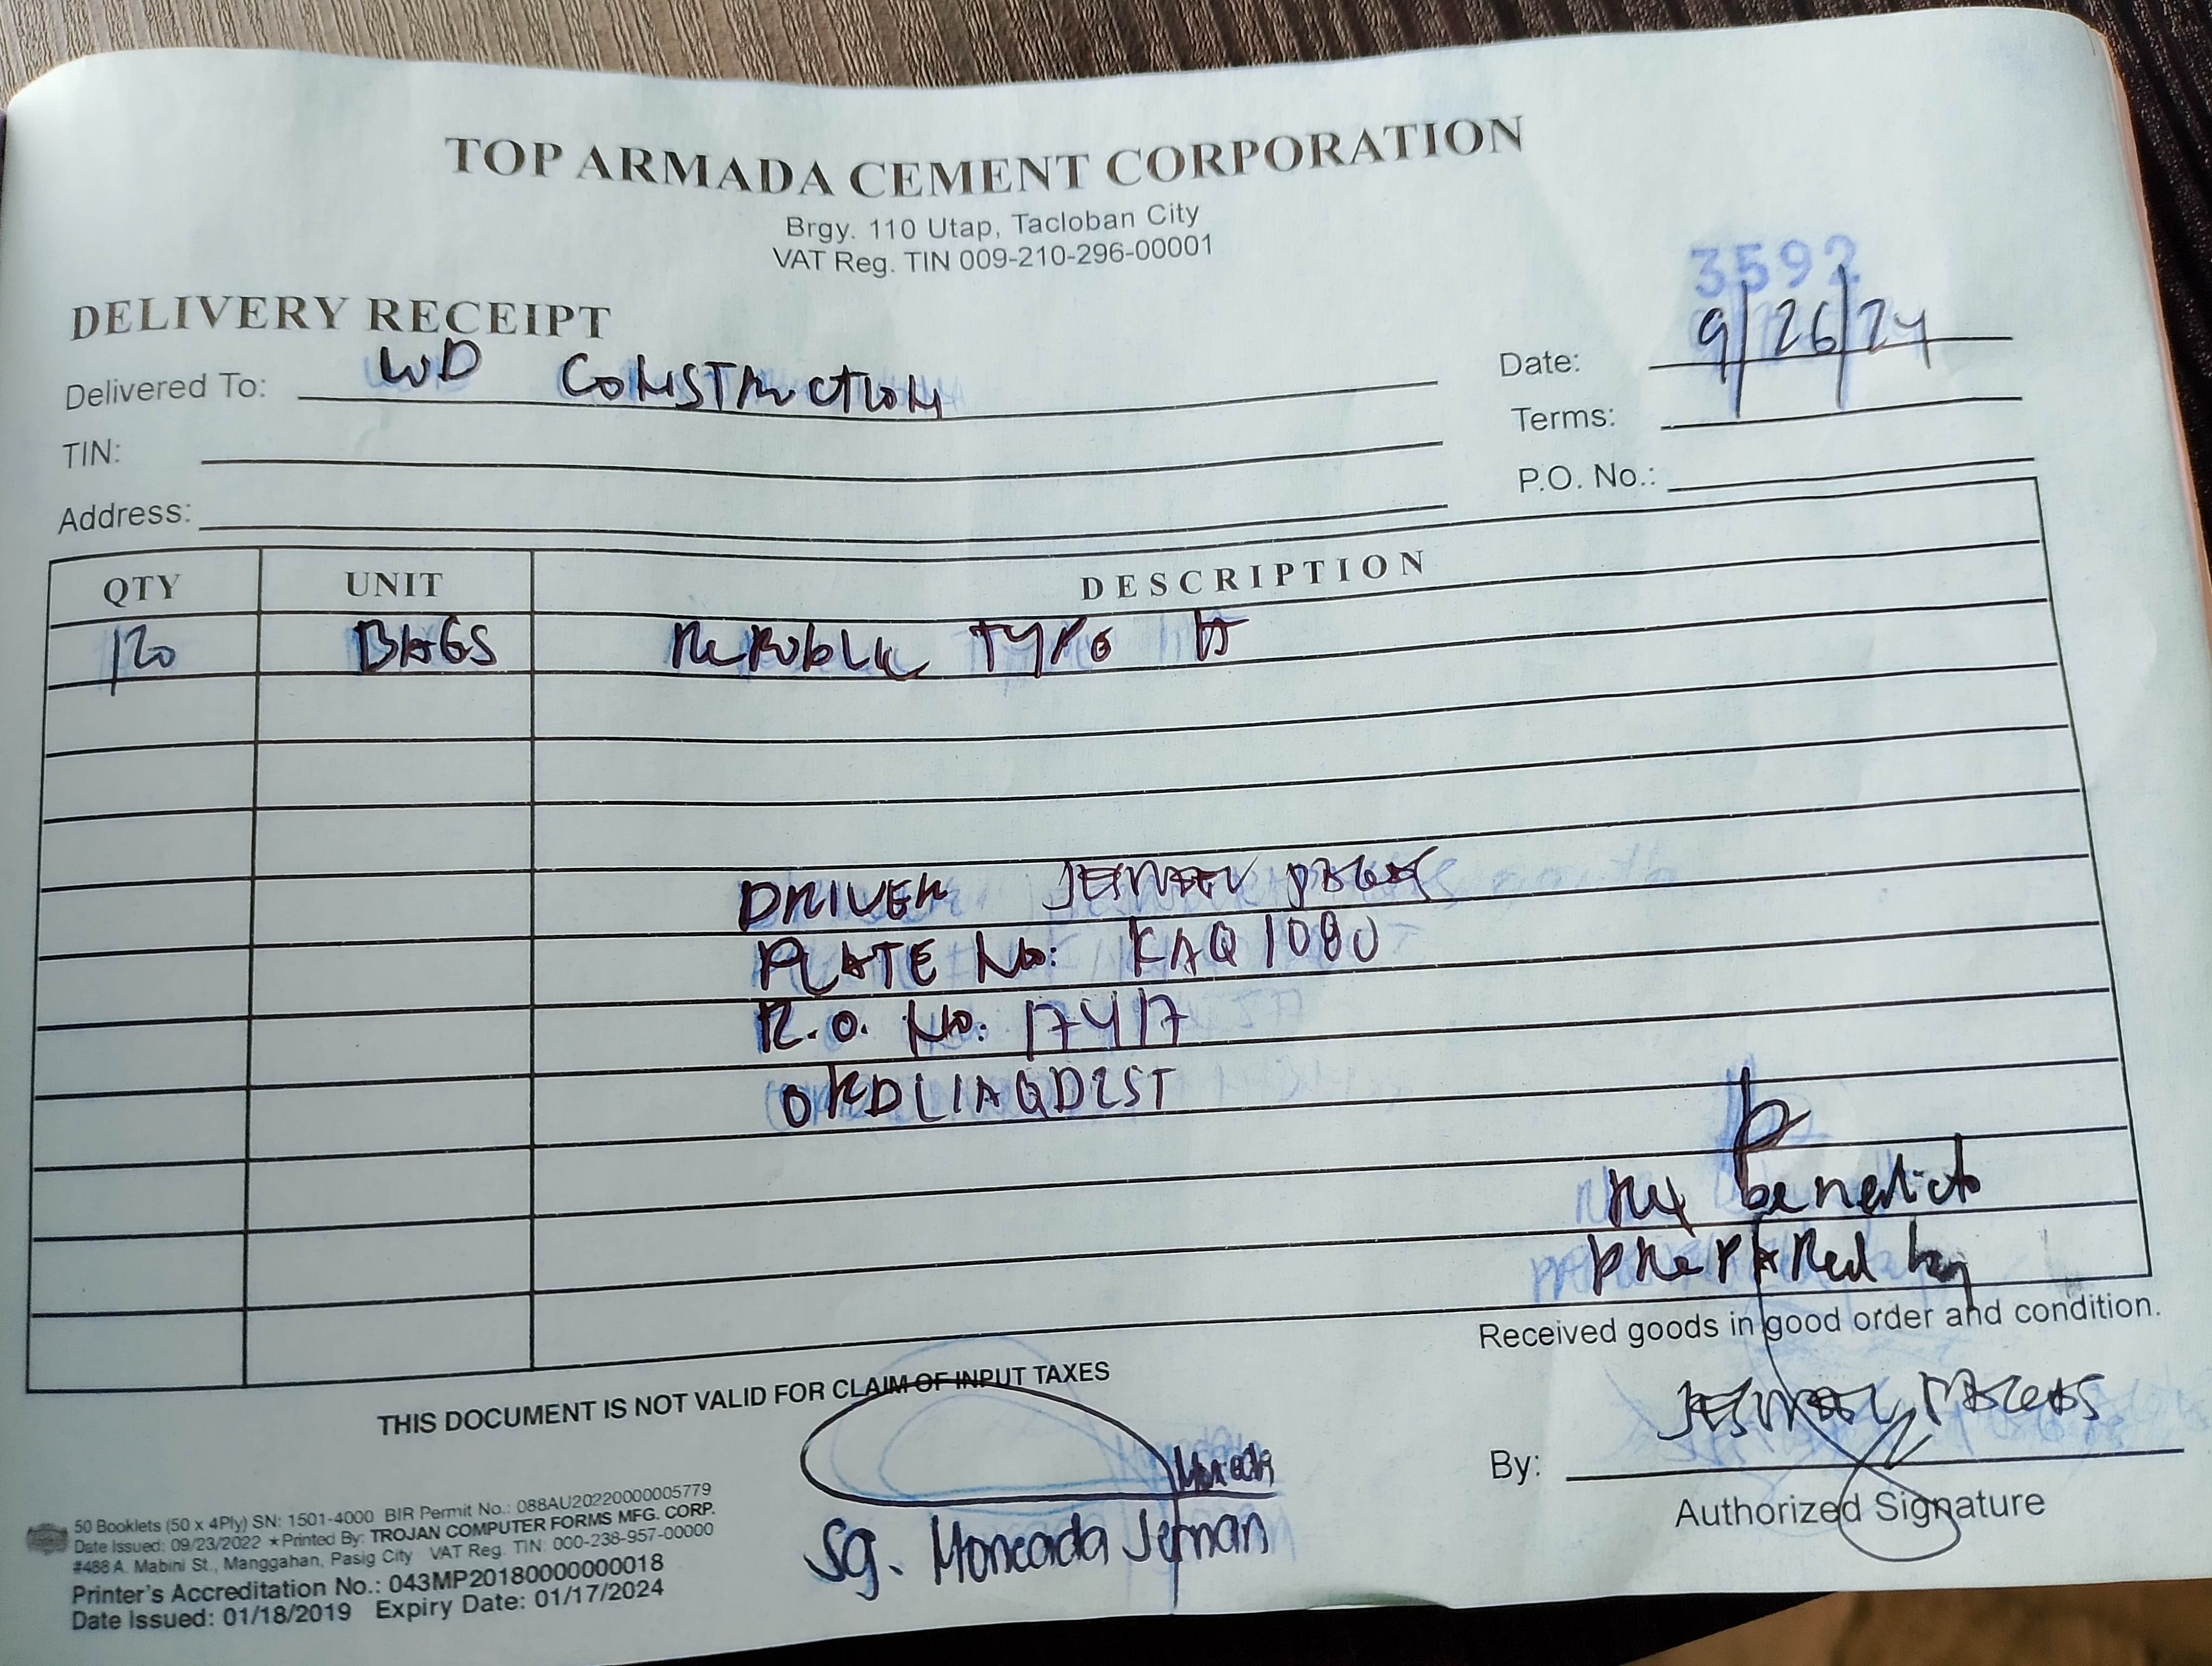 TOP ARMADA CEMENT CORPORATION
Brgy. 110 Utap, Tacloban City
VAT Reg. TIN 009-210-296-00001
3592
DELIVERY RECEIPT
Delivered To: WD CONSTRUCTION
Date: 9/26/24
TIN:
Terms:
Address:
P.O. No.:
QTY UNIT DESCRIPTION
120 BAGS REPUBLIC TYPE
DRIVER
PLATE No: KAQ 1080
R.O. No: 17417
benedicto
PREPARED by
Received goods in good order and condition.
THIS DOCUMENT IS NOT VALID FOR CLAIM OF INPUT TAXES
By:
Authorized Signature
Sg. Moncada Jeman
50 Booklets (50 x 4Ply) SN: 1501-4000 BIR Permit No.: 088AU20220000005779
Date Issued: 09/23/2022 ★Printed By: TROJAN COMPUTER FORMS MFG. CORP.
#488 A. Mabini St., Manggahan, Pasig City VAT Reg. TIN: 000-238-957-00000
Printer's Accreditation No.: 043MP20180000000018
Date Issued: 01/18/2019 Expiry Date: 01/17/2024